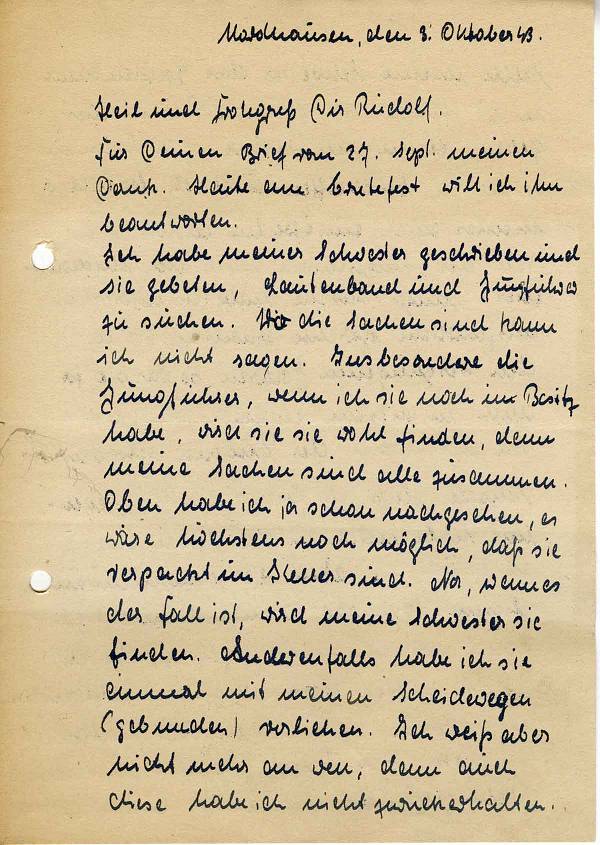 Nordhausen, den 3. Oktober 43.
Heil und Frohgruß Dir Rudolf.
Für Deinen Brief vom 27. Sept. meinen
Dank. Heute am Erntefest will ich ihn
beantworten.
Ich habe meiner Schwester geschrieben und
sie gebeten, Lautenband und Jungführer
zu suchen. Wo die Sachen sind kann
ich nicht sagen. Insbesondere die
Jungführer, wenn ich sie noch im Besitz
habe, wird sie sie wohl finden, denn
meine Sachen sind alle zusammen.
Oben habe ich ja schon nachgesehen, es
wäre höchstens noch möglich, daß sie
verpackt im Keller sind. Na, wenn es
der Fall ist, wird meine Schwester sie
finden. Anderenfalls habe ich sie
einmal mit meinen Scheidewegen
(gebunden) verliehen. Ich weiß aber
nicht mehr an wen, denn auch
diese habe ich nicht zurückerhalten.